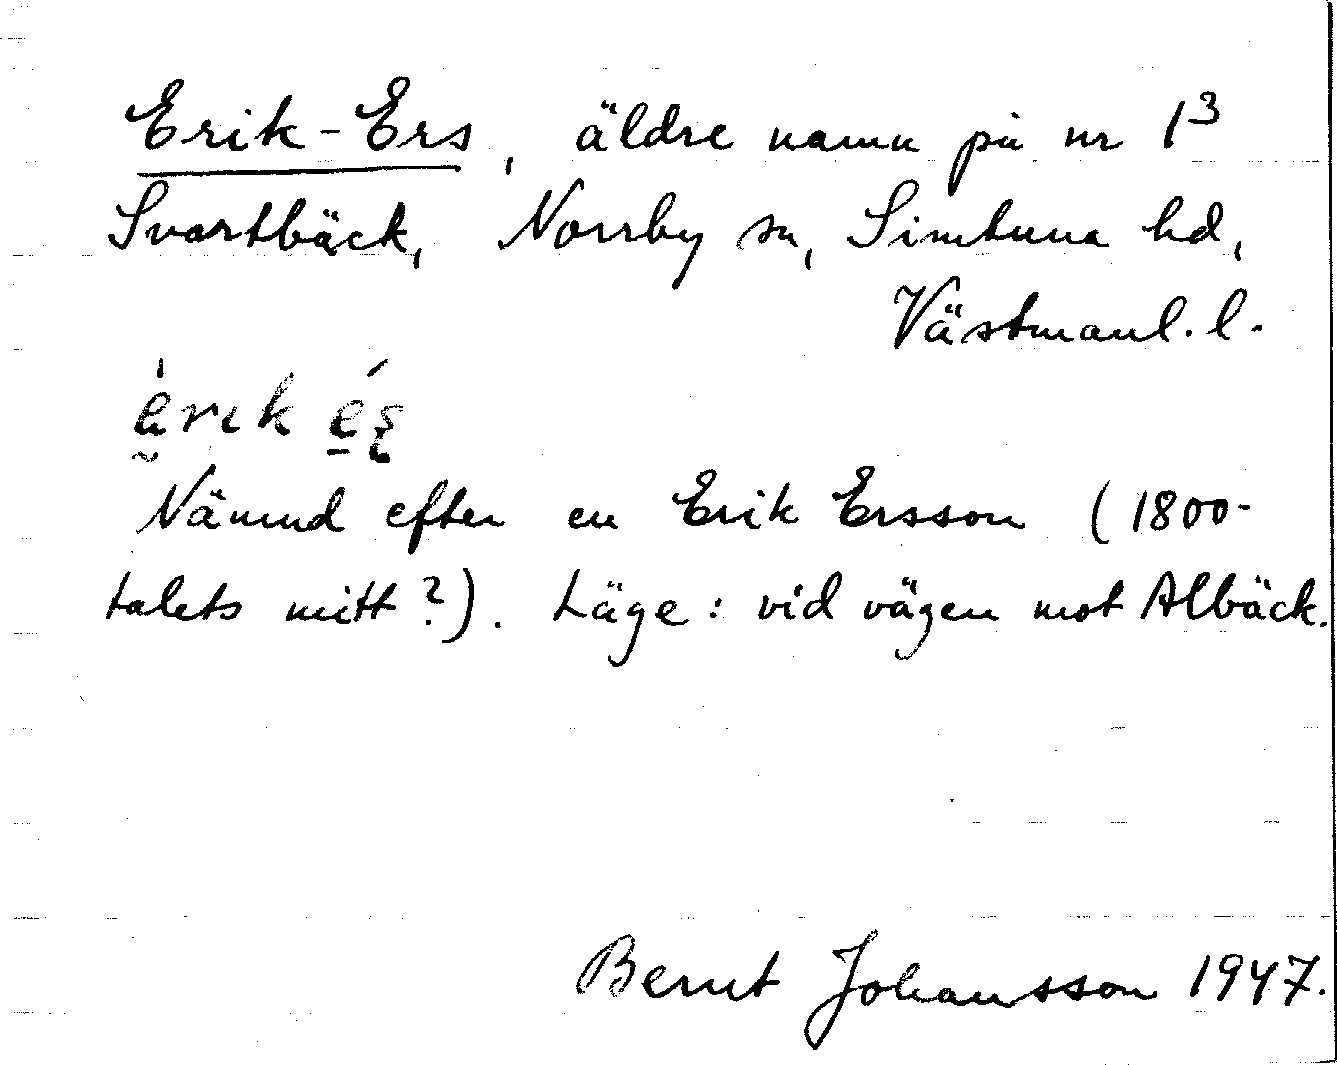 Erik-Ers, äldre namn på nr 1³
Svartbäck, Norrby sn, Simtuna hd,
Västmanl. l.
Nämnd efter en Erik Ersson (1800-
talets mitt?). Läge: vid vägen mot Albäck.
Bernt Johansson 1947.